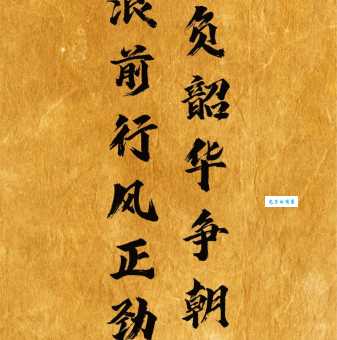 负韶华争朝
浪前行风正劲